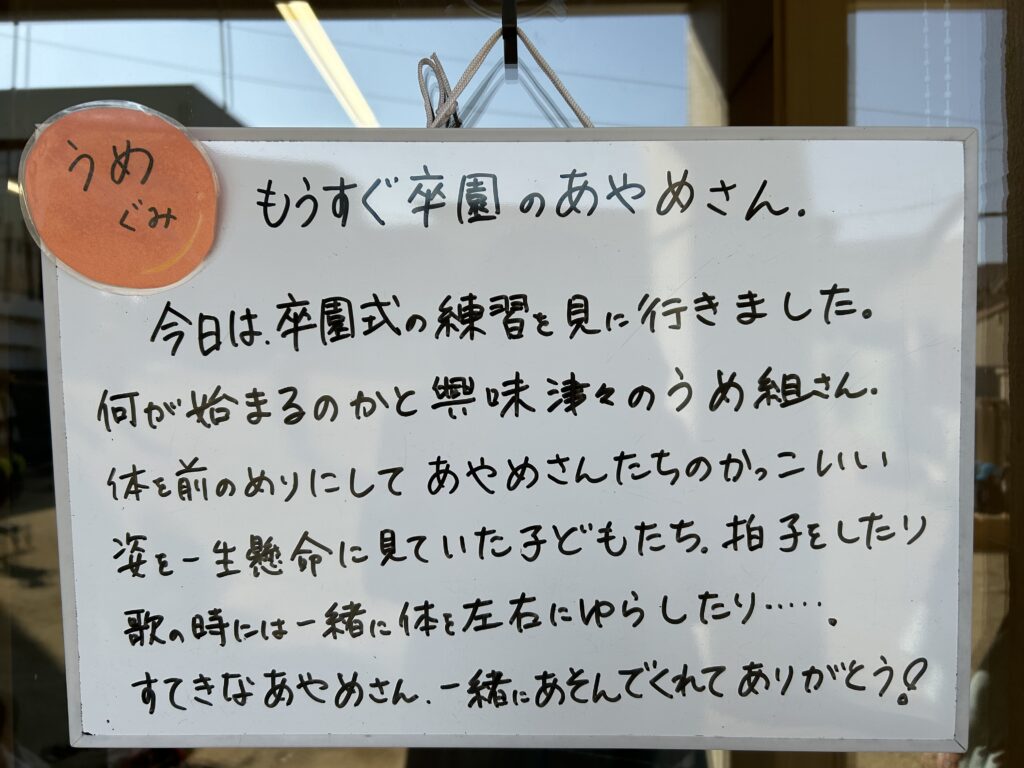 うめ
ぐみ
もうすぐ卒園のあやめさん.
今日は、卒園式の練習を見に行きました。
何が始まるのかと興味津々のうめ組さん.
体を前のめりにしてあやめさんたちのかっこいい
姿を一生懸命に見ていた子どもたち。拍子をしたり
歌の時には一緒に体を左右にゆらしたり……。
すてきなあやめさん.一緒にあそんでくれてありがとう!